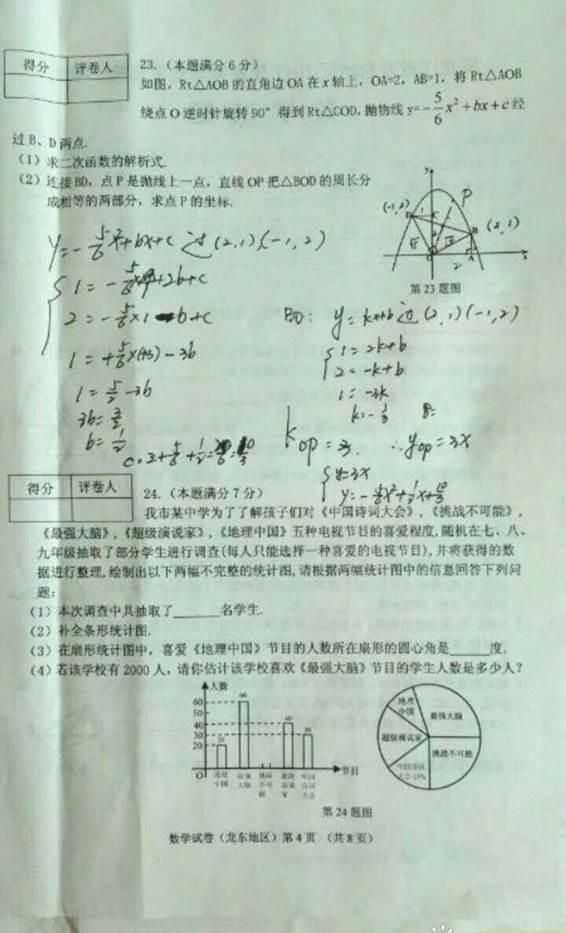 得分 评卷人
23.（本题满分6分）
如图，Rt△AOB的直角边OA在x轴上，OA=2，AB=1，将Rt△AOB
绕点O逆时针旋转90°得到Rt△COD，抛物线y=-5/6x²+bx+c经
过B、D两点.
（1）求二次函数的解析式.
（2）连接BD，点P是抛线上一点，直线OP把△BOD的周长分
成相等的两部分，求点P的坐标.
(-1,2) P
(2,1)
第23题图
y=-5/6x²+bx+c 过(2,1)(-1,2)
2=-5/6×1-b+c
1=5/2-3b
3b=3/2
b=1/2
BD: y=kx+b过(2,1)(-1,2)
1=2k+b
2=-k+b
1=-3k
k=-1/3
kop=3 ∴yop=3x
y=3x
得分 评卷人
24.（本题满分7分）
我市某中学为了了解孩子们对《中国诗词大会》，《挑战不可能》，
《最强大脑》，《超级演说家》，《地理中国》五种电视节目的喜爱程度，随机在七、八、
九年级抽取了部分学生进行调查(每人只能选择一种喜爱的电视节目)，并将获得的数
据进行整理，绘制出以下两幅不完整的统计图，请根据两幅统计图中的信息回答下列问
题：
（1）本次调查中共抽取了______名学生.
（2）补全条形统计图.
（3）在扇形统计图中，喜爱《地理中国》节目的人数所在扇形的圆心角是______度.
（4）若该学校有2000人，请你估计该学校喜欢《最强大脑》节目的学生人数是多少人？
人数
60
50
40
30
20
O
节目
地理中国
最强大脑
超级演说家
挑战不可能
第24题图
数学试卷（龙东地区）第4页 （共8页）